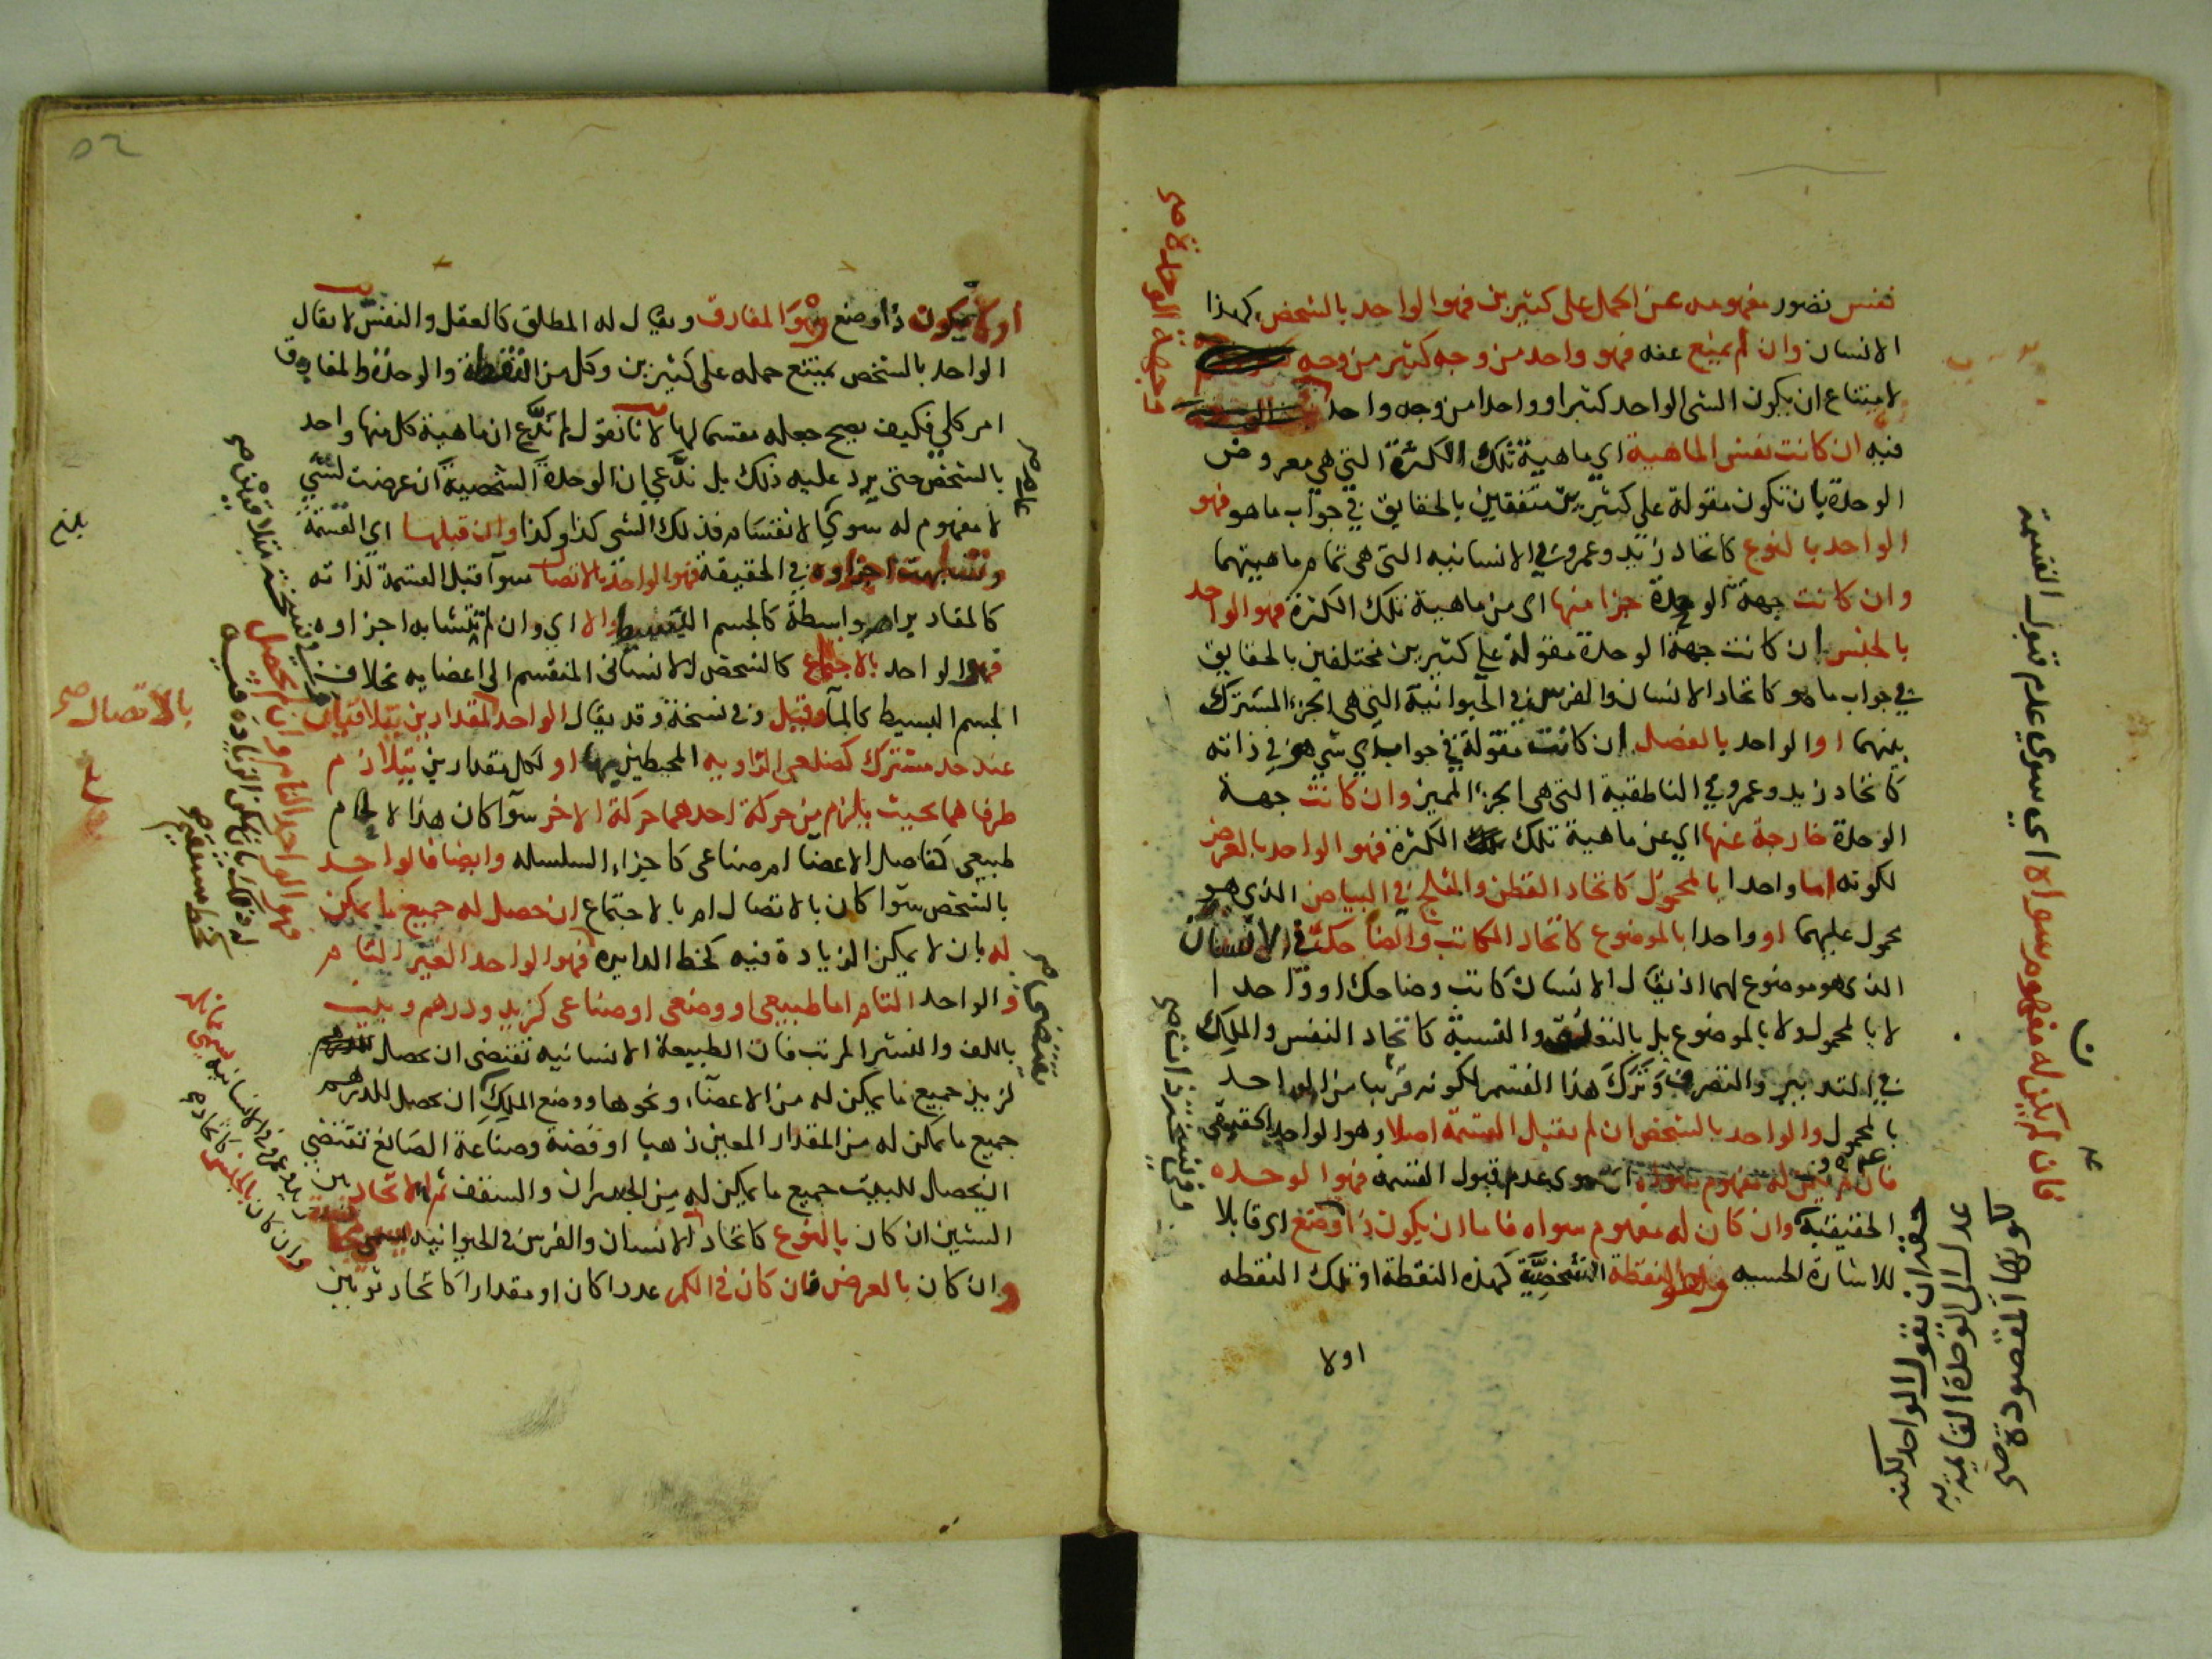 نفس تصور مفهومه عن الحمل على كثيرين فهو الواحد بالشخص كهذا
الانسان وان لم يمنع عنه فهو واحد من وجه كثير من وجه
لامتناع ان يكون الشى الواحد كثيرا وواحدا من وجه واحد
جهة الوحدة صح
فيه ان كانت نفس الماهية اي ماهية تلك الكثرة التي هي معروض
الوحدة بان تكون مقولة على كثيرين متفقين بالحقايق في جواب ما هو فهو
الواحد بالنوع كاتحاد زيد وعمرو في الانسانيه التي هي تمام ماهيتهما
وان كانت جهة الوحدة جزا منها اى من ماهية تلك الكثرة فهو الواحد
بالجنس ان كانت جهة الوحدة مقولة على كثيرين مختلفين بالحقايق
في جواب ما هو كاتحاد الانسان والفرس في الحيوانية التي هي الجزء المشترك
بينهما او الواحد بالفصل ان كانت مقولة في جواب اي شي هو في ذاته
كاتحاد زيد وعمرو في الناطقية التي هي الجزء المميز وان كانت جهة
الوحدة خارجة عنها اي عن ماهية تلك الكثرة فهو الواحد بالعرض
لكونه اما واحدا بالمحمول كاتحاد القطن والثلج في البياض الذي هو
محمول عليهما او واحدا بالموضوع كاتحاد الكاتب والضاحك في الانسان
الذى هو موضوع لهما اذ يقال الانسان كاتب وضاحك او واحدا
لا بالمحمول ولا بالموضوع بل بالنسبة كاتحاد النفس والملك
في التدبير والتصرف وترك هذا القسم لكونه قريبا من الواحد
بالمحمول والواحد بالشخص ان لم يقبل القسمة اصلا وهو الواحد الحقيقي
فان لم يكن له مفهوم سوى عدم قبول القسمه فهو الوحده
الحقيقية وان كان له مفهوم سواه فاما ان يكون ذا وضع اى قابلا
للاشارة الحسيه النقطة الشخصية كهذه النقطة او تلك النقطه
اولا
فان لم يكن له مفهوم سواه اي سوى عدم قبول القسمة
حقه ان يقول الواحد لكنه
عدل الى الوحدة
كونها المقصودة صح
وفى نسخة
او لا يكون ذا وضع وهو المفارق ويقال له المطلق كالعقل والنفس لا يقال
الواحد بالشخص يمتنع حمله على كثيرين وكل من النقطة والوحدة والمفارق
امر كلي فكيف يصح جعله مقسما لها لانا نقول لم ندع ان ماهية كل منها واحد
بالشخص حتى يرد عليه ذلك بل ندعي ان الوحدة الشخصية ان عرضت لشي
لا مفهوم له سوى الانقسام فذلك الشى كذا وكذا وان قبلها اي القسمة
وتشابهت اجزاوه في الحقيقة فهو الواحد بالاتصال سوآ قبل القسمة لذاته
كالمقادير ام بواسطة كالجسم البسيط والا اي وان لم تتشابه اجزاوه
فهو الواحد بالاجتماع كالشخص الانسانى المنقسم الى اعضايه بخلاف
الجسم البسيط كالمآ وقيل وفى نسخة وقد يقال الواحد لمقدارين يتلاقيان
عند حد مشترك كضلعي الزاويه المحيطين بها او لكل مقدارين يتلازم
طرفاهما بحيث يلزم من حركة احدهما حركة الاخر سوآ كان هذا الالتحام
طبيعى كمفاصل الاعضا ام صناعى كاجزاء السلسله وايضا فالواحد
بالشخص سوا كان بالاتصال ام بالاجتماع ان حصل له جميع ما يمكن
له بان لا يمكن الزيادة فيه كخط الدايره فهو الواحد الغير التام
والواحد التام اما طبيعى او وضعى او صناعى كزيد ودرهم وبيت
باللف والنشر المرتب فان الطبيعة الانسانيه تقتضى ان يحصل
لزيد جميع ما يمكن له من الاعضآء ونحوها ووضع الملك ان يحصل للدرهم
جميع ما يمكن له من المقدار المعين ذهبا او فضة وصناعة الصانع تقتضي
ان يحصل للبيت جميع ما يمكن له من الجدران والسقف ثم الاتحاد بين
الشيئين ان كان بالنوع كاتحاد الانسان والفرس فى الحيوانيه
وان كان بالعرض فان كان فى الكم عددا كان او مقدارا كاتحاد ثوبين
بلغ
بالاتصال صح
يقتضى صح
فهو الواحد التام وان لم يحصل
له ذلك بان يمكن الزيادة فيه
كخط مستقيم
وان كان بالجنس